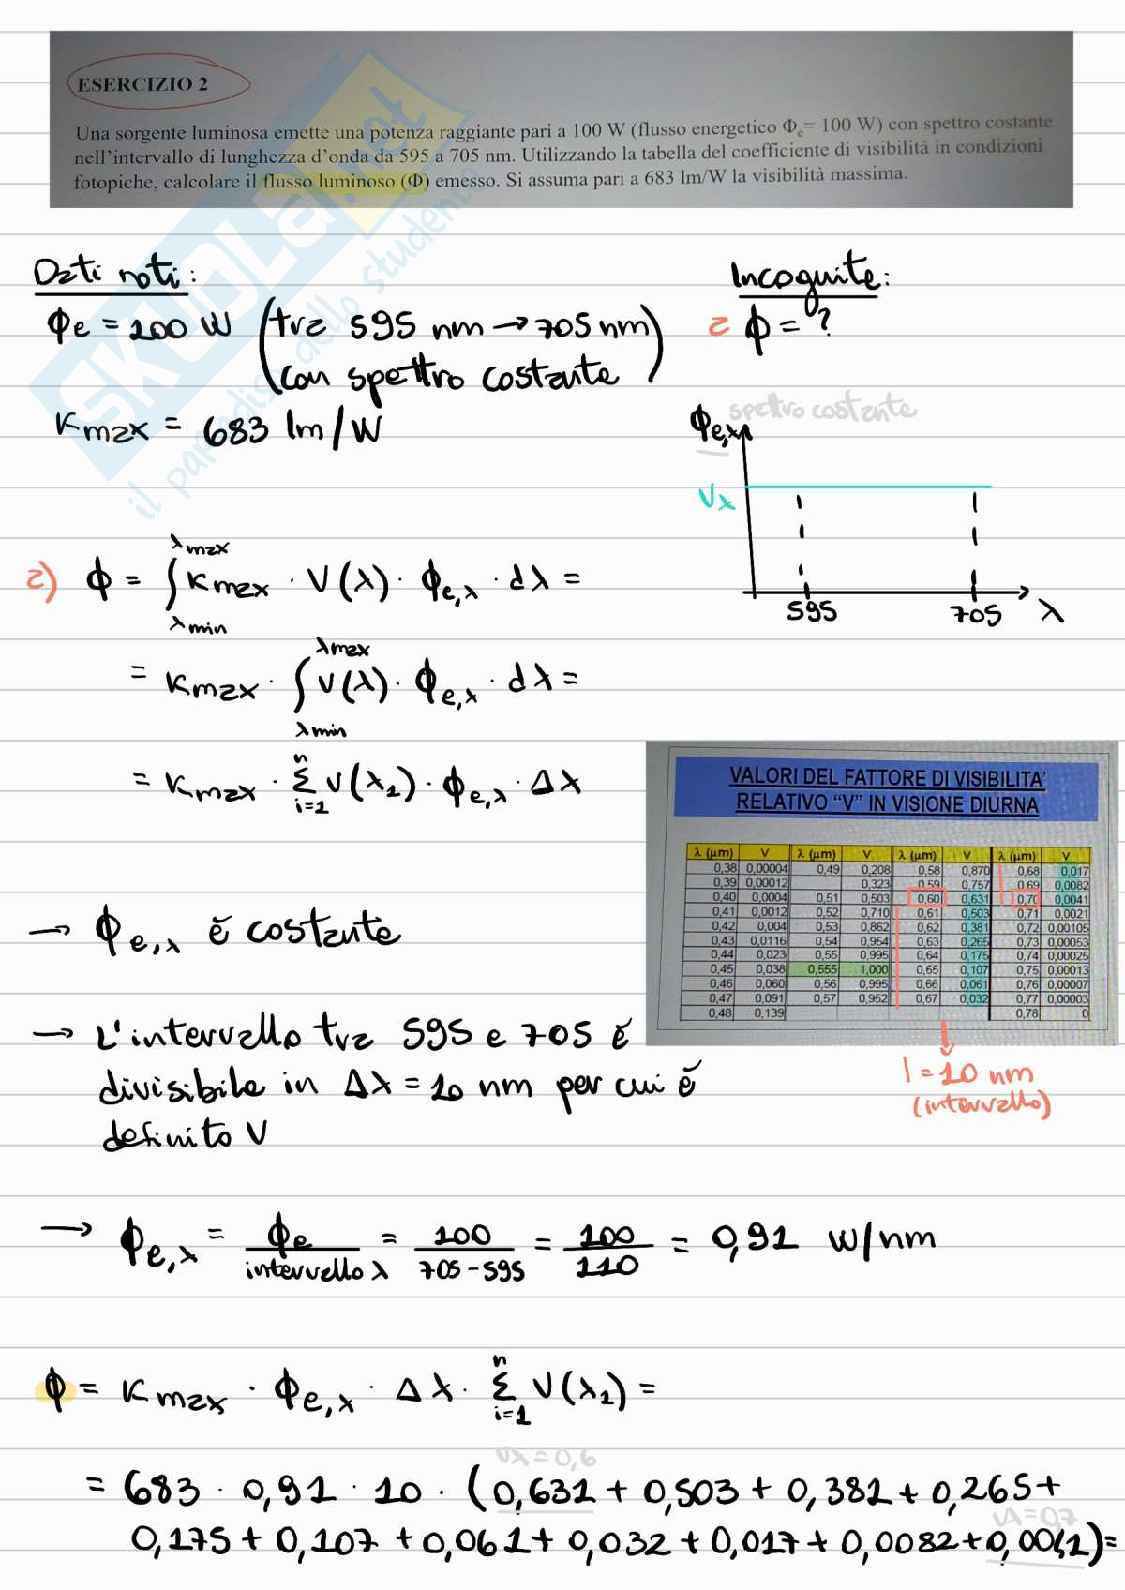 ESERCIZIO 2
Una sorgente luminosa emette una potenza raggiante pari a 100 W (flusso energetico Φe= 100 W) con spettro costante
nell'intervallo di lunghezza d'onda da 595 a 705 nm. Utilizzando la tabella del coefficiente di visibilità in condizioni
fotopiche, calcolare il flusso luminoso (Φ) emesso. Si assuma pari a 683 lm/W la visibilità massima.
SKUOLA.net
il paradiso dello studente
Dati noti:
Φe = 100 W (tra 595 nm → 705 nm)
(con spettro costante)
Kmax = 683 lm/W
Incognite:
a Φ = ?
Φe,λ spettro costante
Vλ
595 705 λ
a) Φ = ∫ λmin λmax Kmax · V(λ) · Φe,λ · dλ =
= Kmax · ∫ λmin λmax V(λ) · Φe,λ · dλ =
= Kmax · Σ i=1 n V(λ1) · Φe,λ · Δλ
VALORI DEL FATTORE DI VISIBILITA'
RELATIVO "V" IN VISIONE DIURNA
λ (μm) V λ (μm) V λ (μm) V λ (μm) V
0,38 0,00004 0,49 0,208 0,58 0,870 0,68 0,017
0,39 0,00012 0,323 0,59 0,757 0,69 0,0082
0,40 0,0004 0,51 0,503 0,60 0,631 0,70 0,0041
0,41 0,0012 0,52 0,710 0,61 0,503 0,71 0,0021
0,42 0,004 0,53 0,862 0,62 0,381 0,72 0,00105
0,43 0,0116 0,54 0,954 0,63 0,265 0,73 0,00053
0,44 0,023 0,55 0,995 0,64 0,175 0,74 0,00025
0,45 0,038 0,555 1,000 0,65 0,107 0,75 0,00013
0,46 0,060 0,56 0,995 0,66 0,061 0,76 0,00007
0,47 0,091 0,57 0,952 0,67 0,032 0,77 0,00003
0,48 0,139 0,78 0
I = 10 nm
(intervallo)
→ Φe,λ è costante
→ L'intervallo tra 595 e 705 è
divisibile in Δλ = 10 nm per cui è
definito V
→ Φe,λ = Φe / intervallo λ = 100 / 705 - 595 = 100 / 110 = 0,91 W/nm
Φ = Kmax · Φe,λ · Δλ · Σ i=1 n V(λ1) =
Vλ = 0,6
= 683 · 0,91 · 10 · (0,631 + 0,503 + 0,381 + 0,265 +
Vλ = 0,7
0,175 + 0,107 + 0,061 + 0,032 + 0,017 + 0,0082 + 0,0041) =